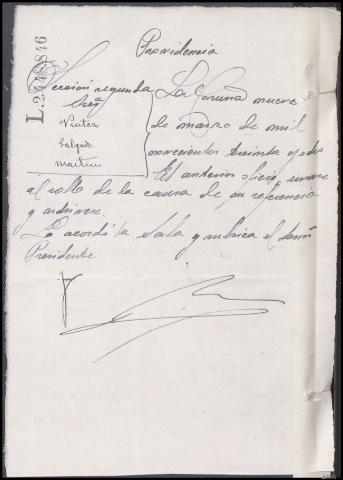 L.2448846
Providencia
Sección segunda
Sres
Pintos
Salgado
Martin
La Coruña nueve
de marzo de mil
novecientos treinta y ocho
El anterior oficio, unase
al rollo de la causa de su referencia
y archivese.
Lo acordó la Sala y rubrica el señor
Presidente.